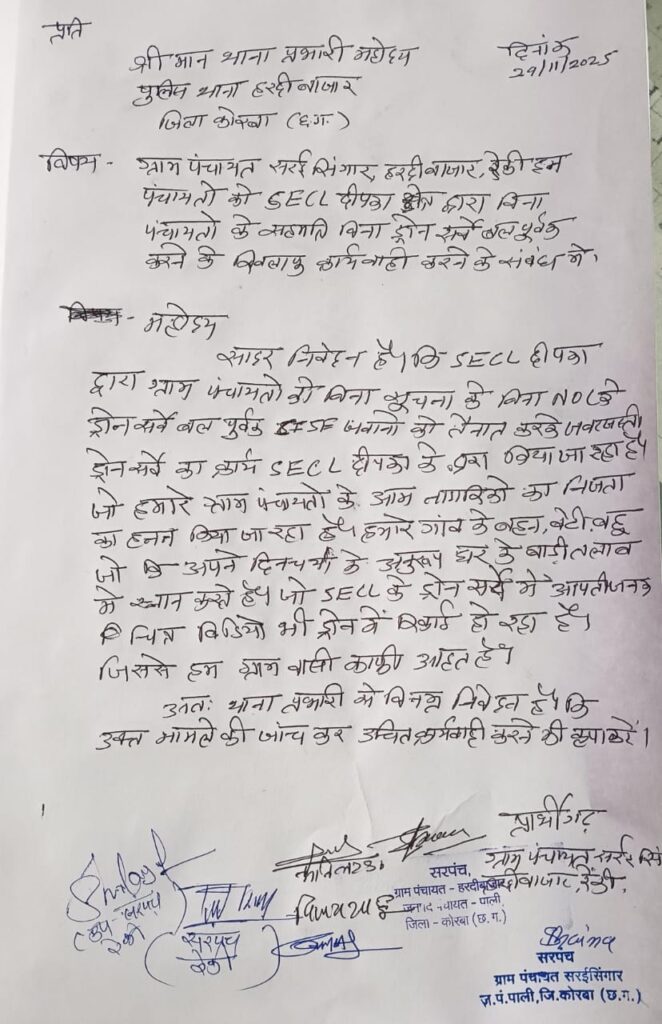 प्रति
श्री मान थाना प्रभारी महोदय
दिनांक
29/11/2025
पुलिस थाना हरदीबाजार
जिला कोरबा (छ.ग.)
विषय - ग्राम पंचायत सरईसिंगार, हरदीबाजार, रेंकी इन
पंचायतो को SECL दीपका क्षेत्र द्वारा बिना
पंचायतो के सहमति बिना ड्रोन सर्वे बल पूर्वक
करने के खिलाफ कार्यवाही करने के संबंध में।
महोदय
सादर निवेदन है। कि SECL दीपका
द्वारा ग्राम पंचायतो को बिना सूचना के बिना NOC के
ड्रोन सर्वे बल पुर्वक जवानो को तैनात करके जबरजस्ती
ड्रोन सर्वे का कार्य SECL दीपका के द्वारा किया जा रहा है।
जो हमारे ग्राम पंचायतो के आम नागरिको का निजता
का हनन किया जा रहा है। हमारे गांव के बहन, बेटी, बहु
जो कि अपने दिनचर्या के अनुरूप घर के बाड़ी तलाब
मे स्नान करते है। जो SECL के ड्रोन सर्वे मे आपतीजनक
चित्र विडियो भी ड्रोन में रिकार्ड हो रहा है।
जिससे हम ग्राम वासी काफी आहत है।
अतः थाना प्रभारी से विनम्र निवेदन है। कि
उक्त मामले की जांच कर उचित कार्यवाही करने की कृपा करें।
प्रार्थीगढ़
ग्राम पंचायत सरई सिं
हरदीबाजार, रेंकी,
सरपंच,
ग्राम पंचायत - हरदीबाजार
जनपद पंचायत - पाली,
जिला - कोरबा (छ.ग.)
(उप-सरपंच
रेंकी)
(सरपंच
रेंकी)
सरपंच
ग्राम पंचायत सरईसिंगार
ज़.पं.पाली,जि.कोरबा (छ.ग.)